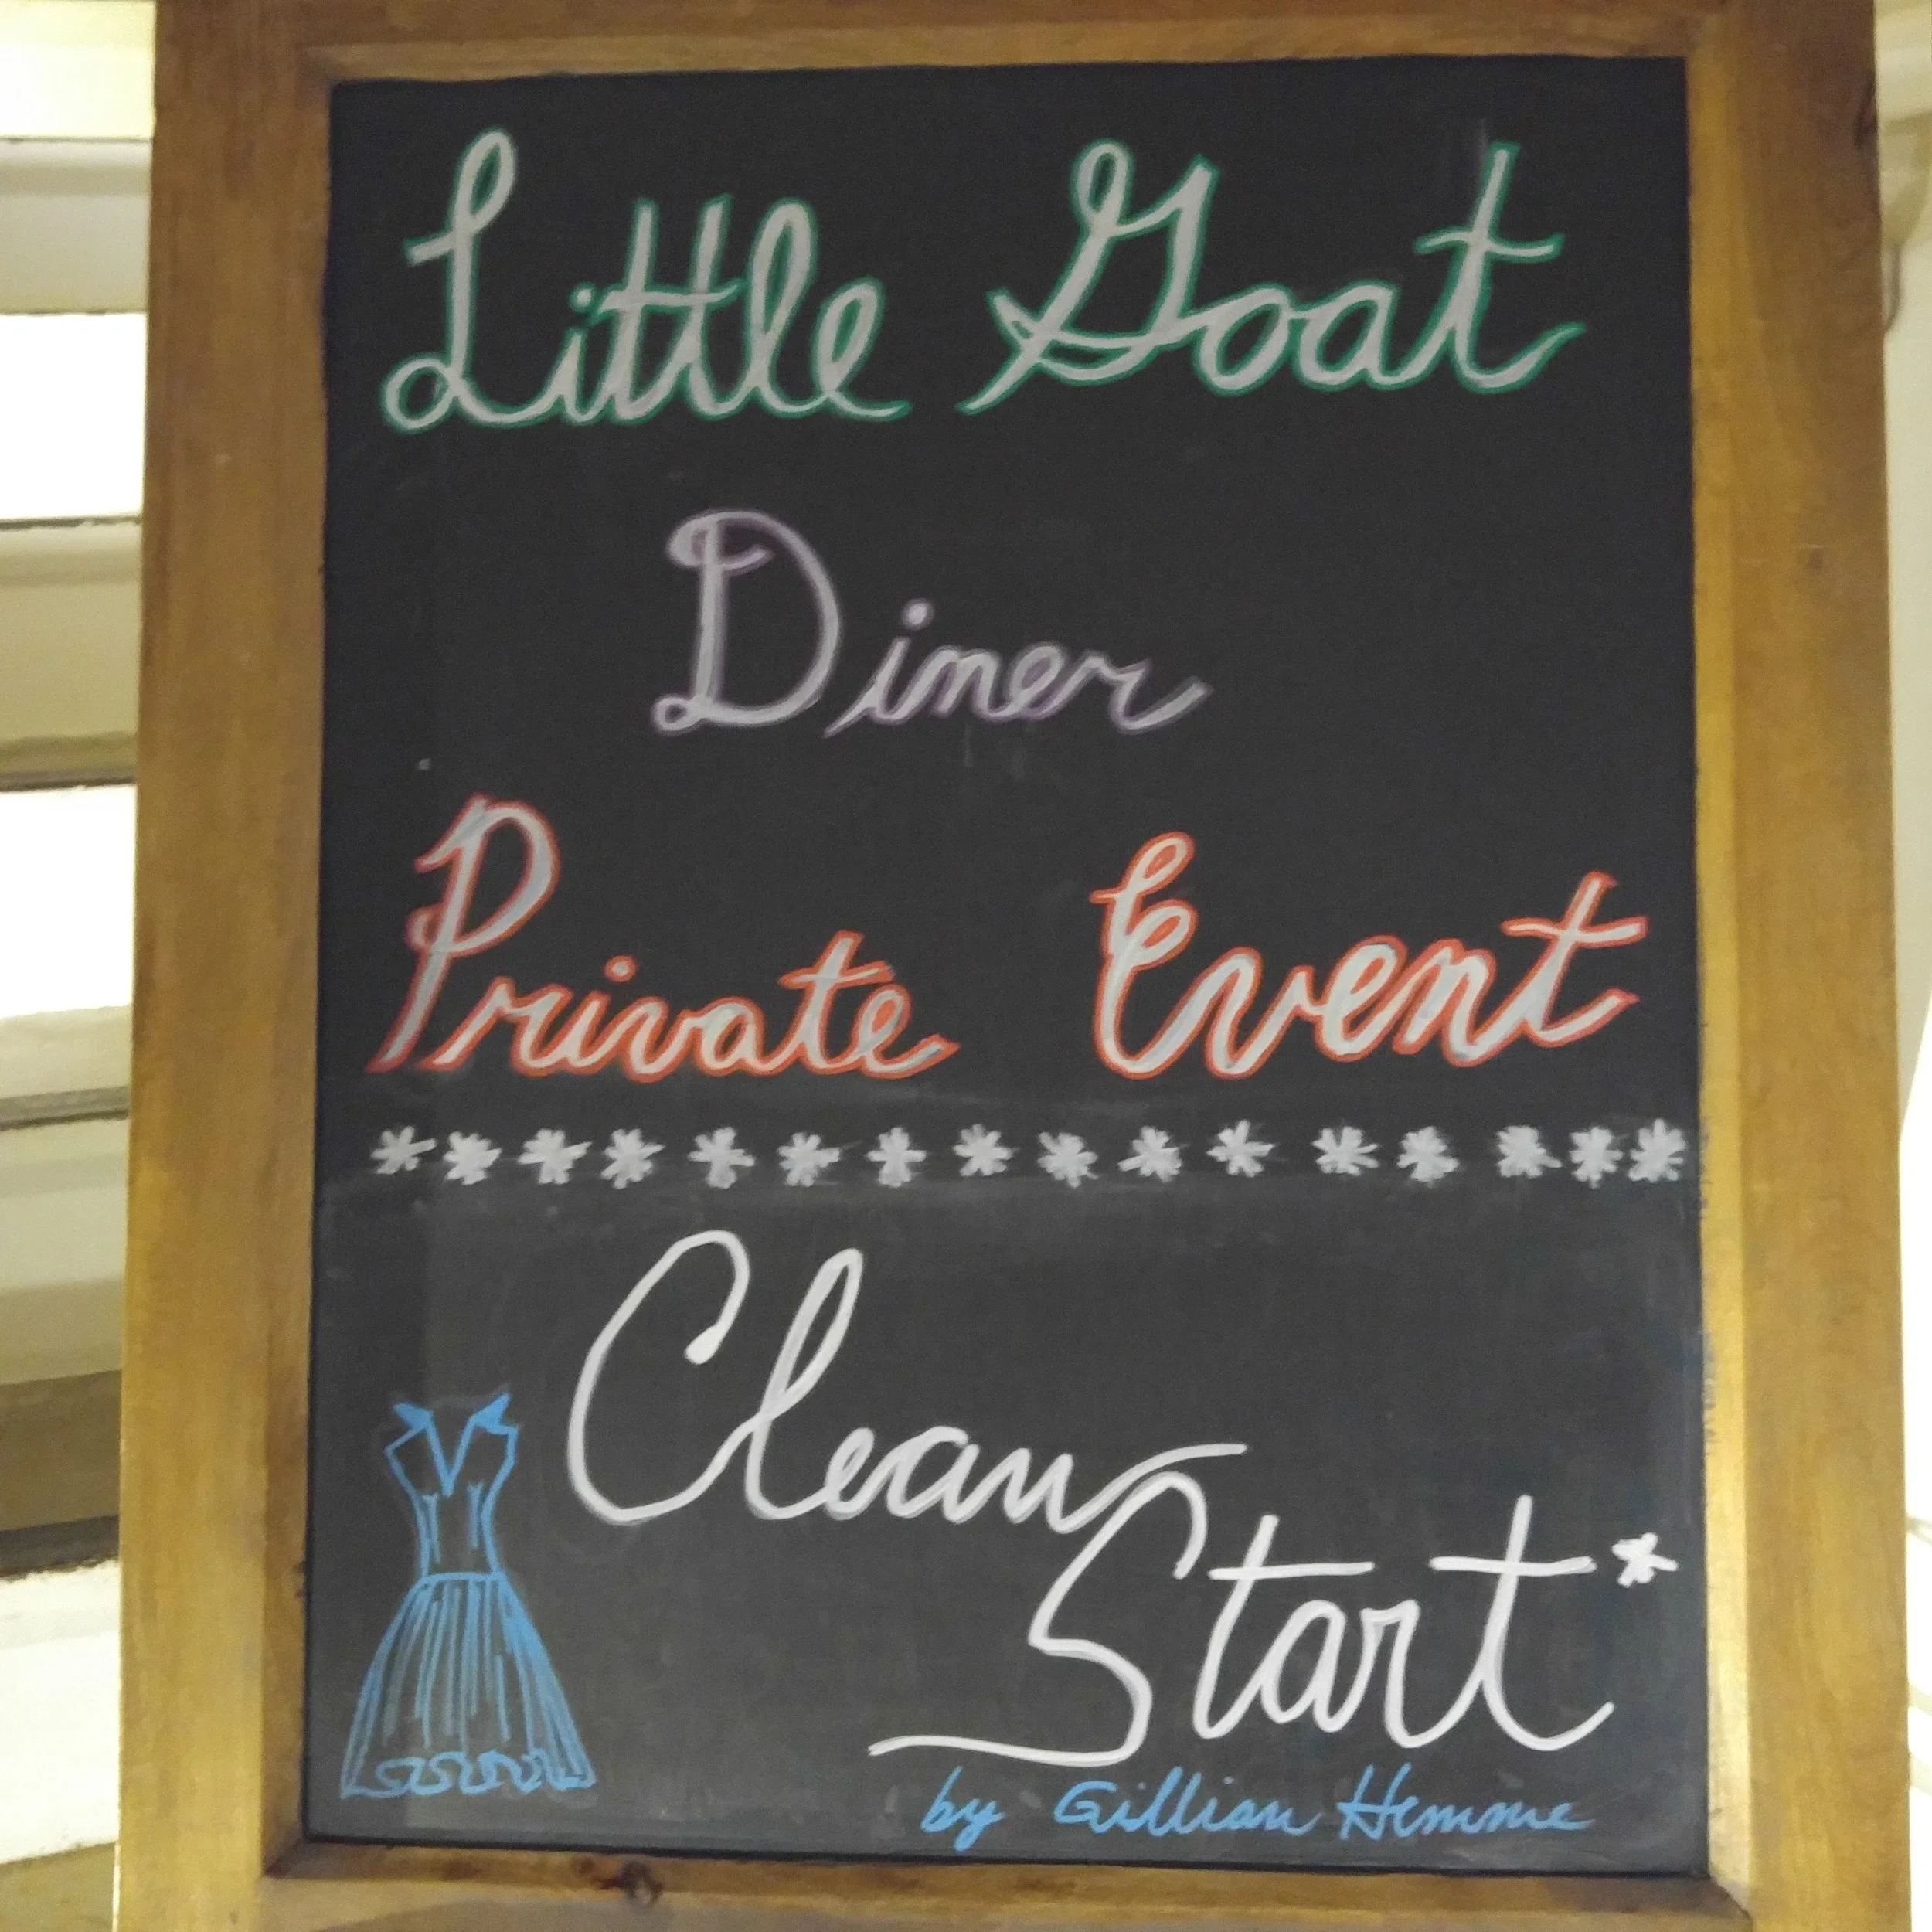 Little Goat
Diner
Private Event
****************
Clean
Start*
by Gillian Hemme